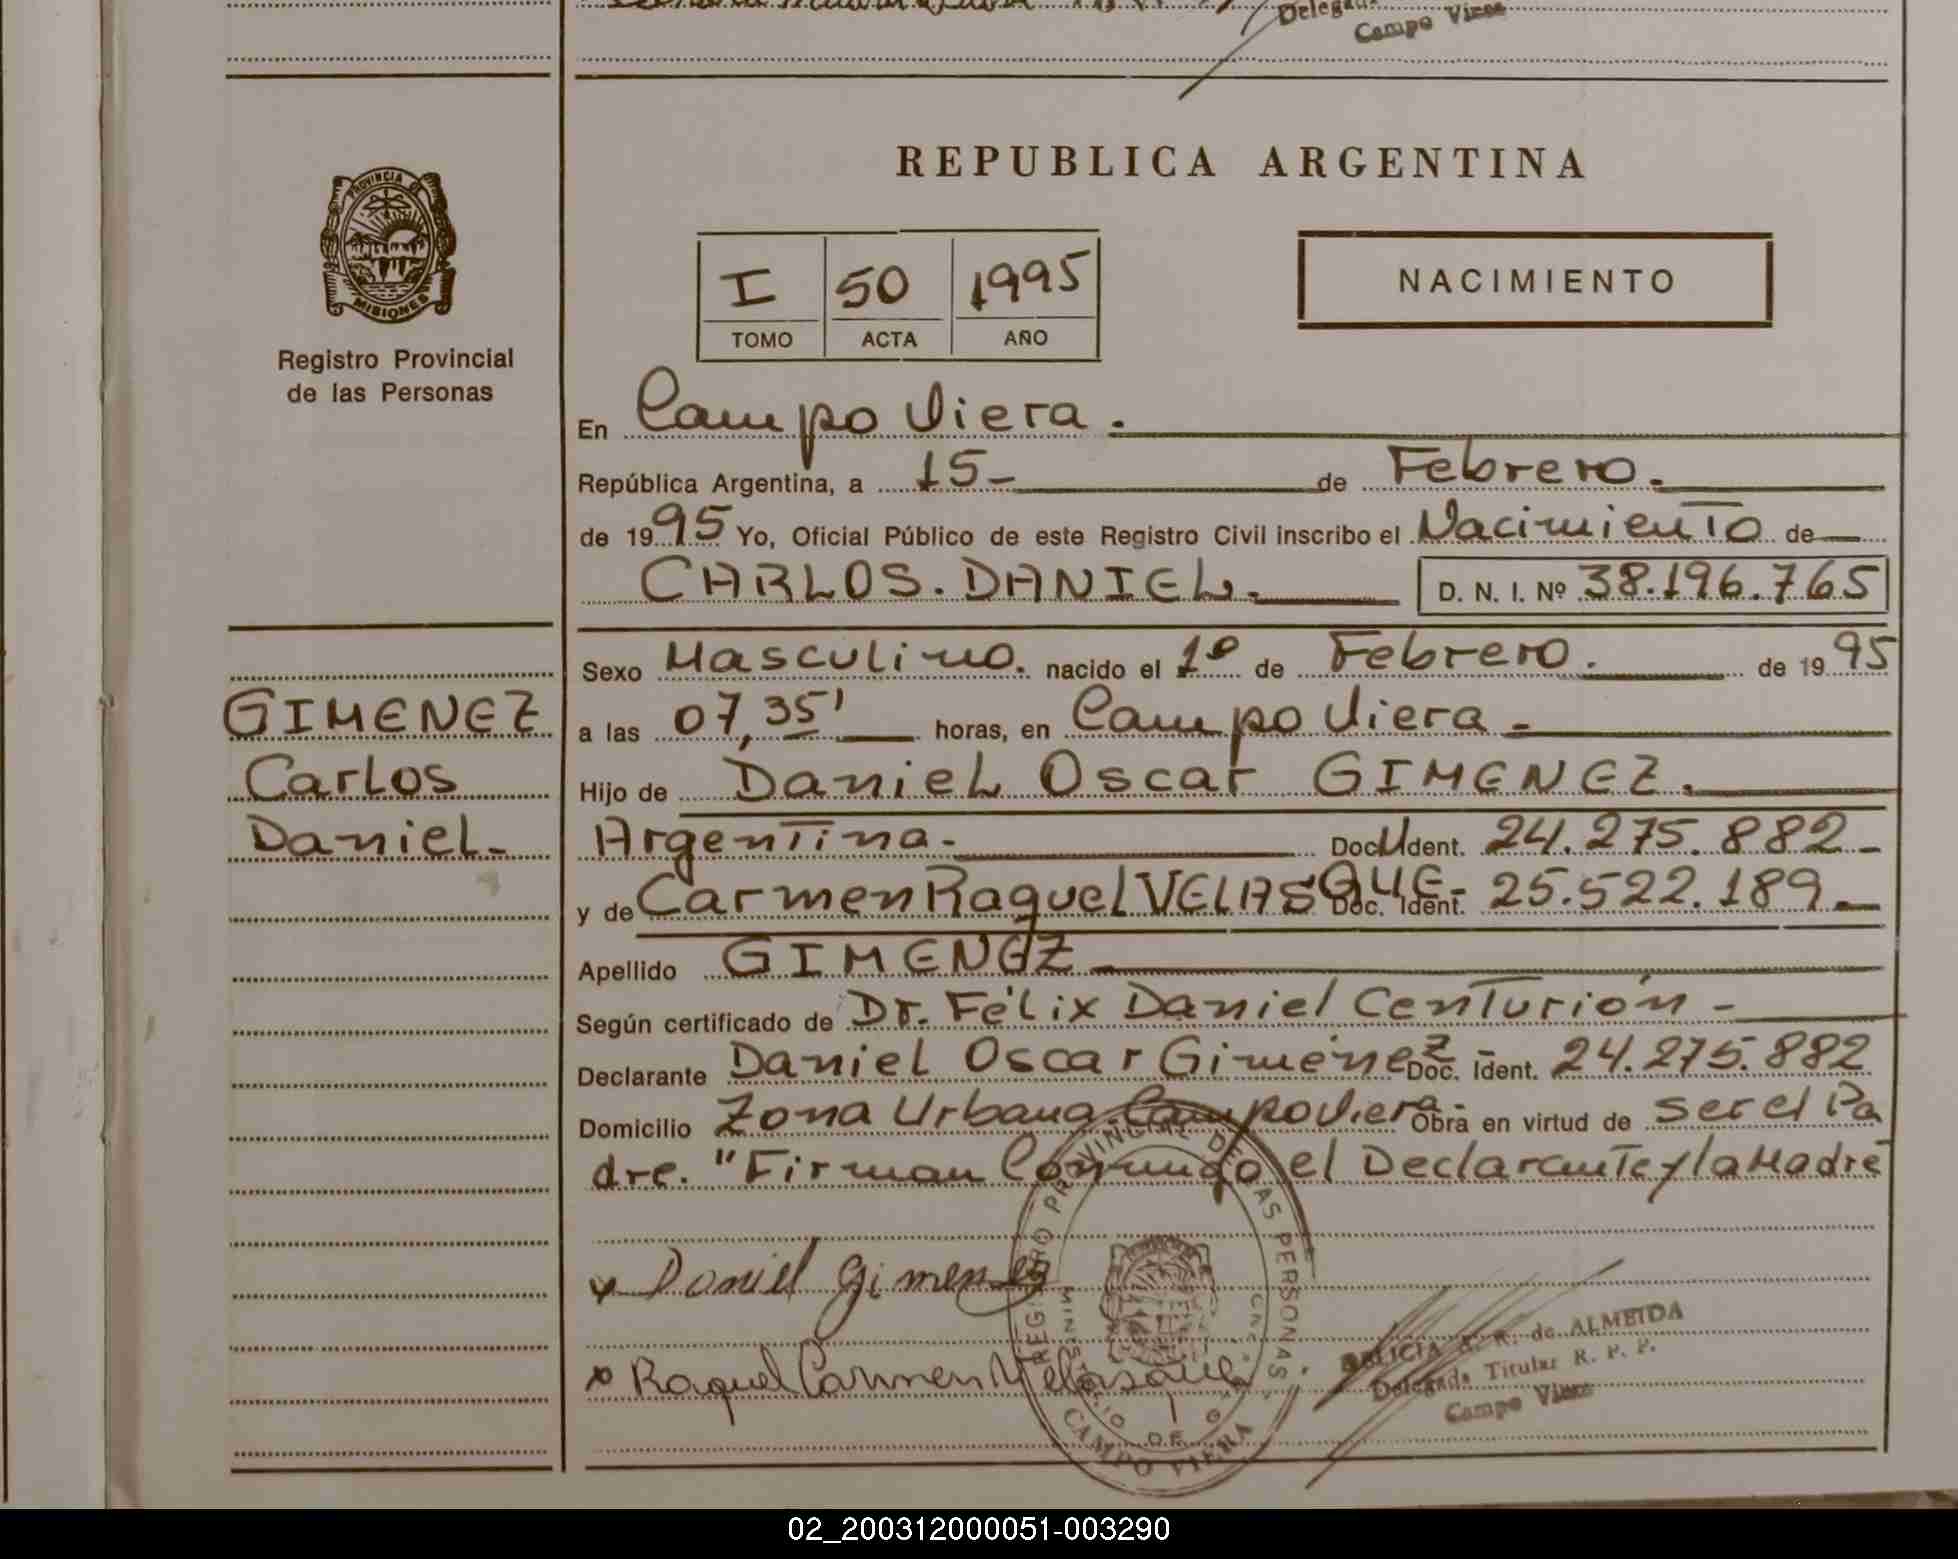 Delegad
Campo Viera
REPUBLICA ARGENTINA
PROVINCIA DE
MISIONES
Registro Provincial
de las Personas
I 50 1995
TOMO ACTA AÑO
NACIMIENTO
En Campo Viera.
República Argentina, a 15- de Febrero.
de 1995 Yo, Oficial Público de este Registro Civil inscribo el Nacimiento de
CARLOS. DANIEL. D. N. I. Nº 38.196.765
Sexo Masculino. nacido el 1º de Febrero. de 1995
GIMENEZ
Carlos
Daniel-
a las 07,35' horas, en Campo Viera-
Hijo de Daniel Oscar GIMENEZ.
Argentina- Doc. Ident. 24.275.882-
y de Carmen Raquel VELASQUE- Doc. Ident. 25.522.189-
Apellido GIMENEZ-
Según certificado de Dr. Félix Daniel Centurión-
Declarante Daniel Oscar Giménez- Doc. Ident. 24.275.882
Domicilio Zona Urbana Campo Viera- Obra en virtud de ser el Pa
dre. "Firman Conmigo el Declarante y la Madre
Daniel Gimenez
Raquel Carmen Velasque
REGISTRO PROVINCIAL DE LAS PERSONAS
MINISTERIO DE
CAMPO VIERA
de ALMEIDA
Delegada Titular R. P. P.
Campo Viera
02_200312000051-003290